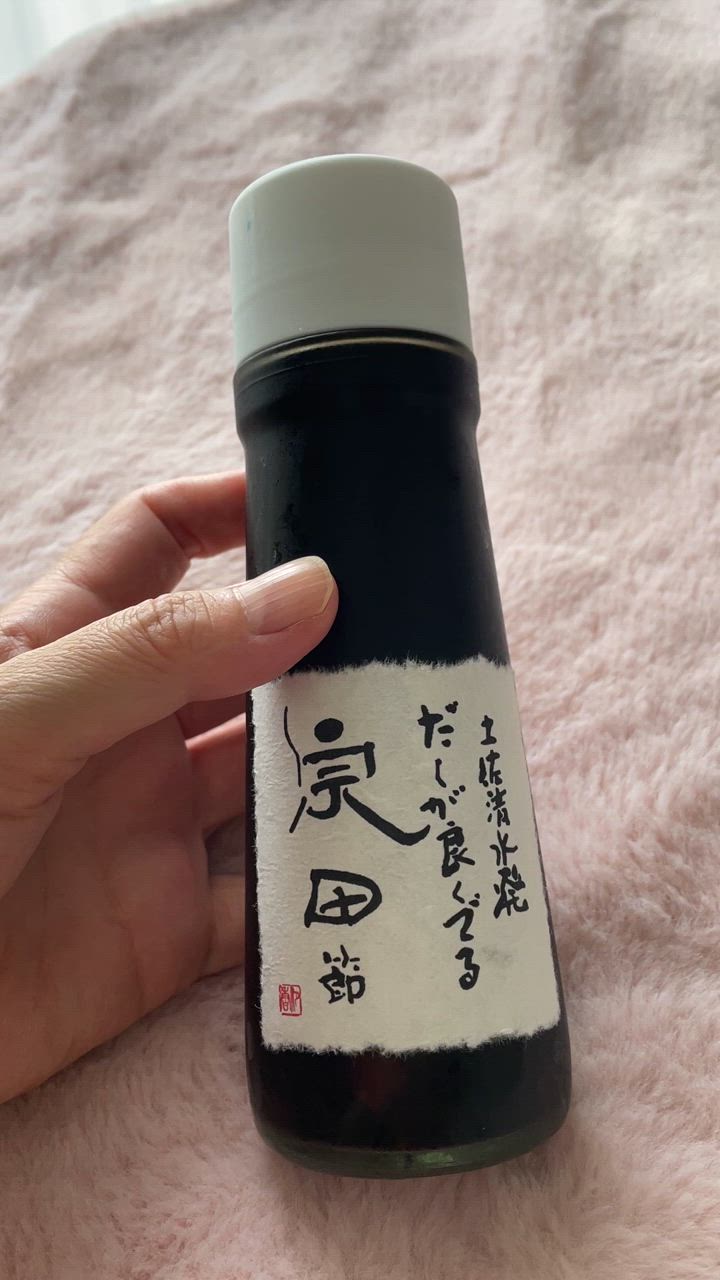 土佐清水発
だしが良くでる
宗田
節